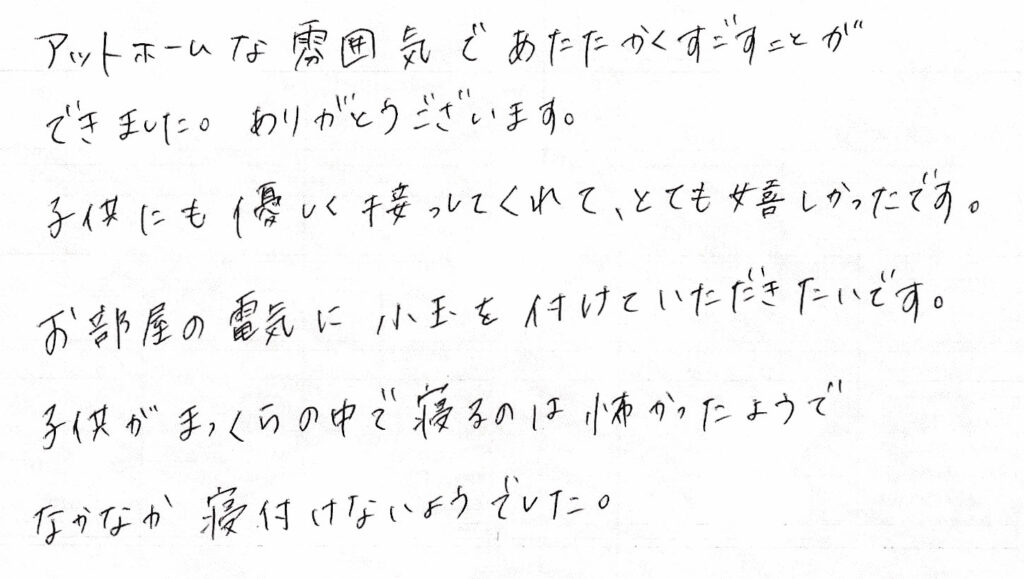 アットホームな雰囲気であたたかくすごすことが
できました。ありがとうございます。
子供にも優しく接っしてくれて、とても嬉しかったです。
お部屋の電気に小玉を付けていただきたいです。
子供がまっくらの中で寝るのは怖かったようで
なかなか寝付けないようでした。